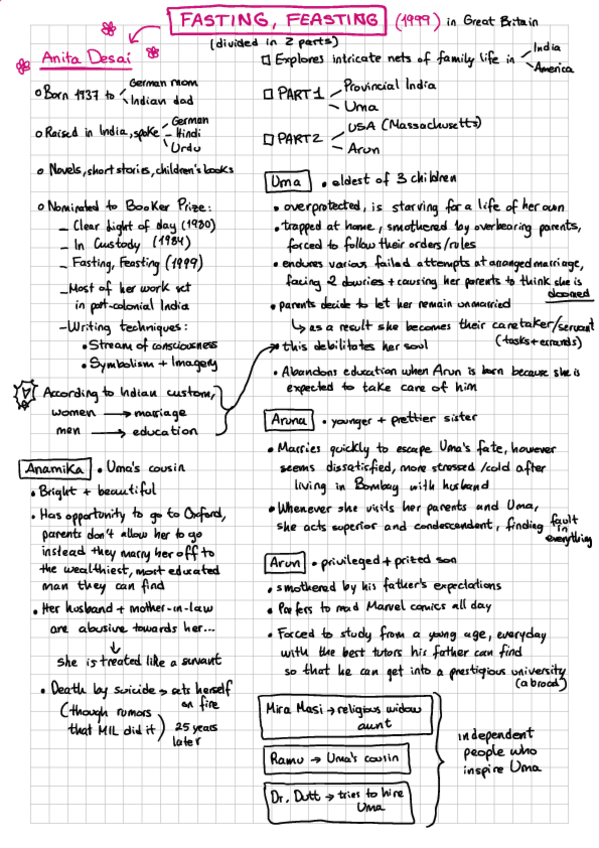 FASTING, FEASTING (1999) in Great Britain
(divided in 2 parts)
Anita Desai
Born 1937 to German mom
Indian dad
Raised in India, spoke German
Hindi
Urdu
Novels, short stories, children's books
Nominated to Booker Prize:
– Clear Light of day (1980)
– In Custody (1984)
– Fasting, Feasting (1999)
– Most of her work set
in post-colonial India
– Writing techniques:
• Stream of consciousness
• Symbolism + Imagery
According to Indian custom,
women → marriage
men → education
Anamika • Uma's cousin
• Bright + beautiful
• Has opportunity to go to Oxford,
parents don't allow her to go
instead they marry her off to
the wealthiest, most educated
man they can find
• Her husband + mother-in-law
are abusive towards her...
↓
she is treated like a servant
• Death by suicide → sets herself
on fire
(though rumors
that MIL did it)
25 years
later
Explores intricate nets of family life in India
America
PART 1 Provincial India
Uma
PART 2 USA (Massachusetts)
Arun
Uma • eldest of 3 children
• overprotected, is starving for a life of her own
• trapped at home, smothered by overbearing parents,
forced to follow their orders/rules
• endures various failed attempts at arranged marriage,
facing 2 dowries + causing her parents to think she is
doomed
• parents decide to let her remain unmarried
↳ as a result she becomes their caretaker/servant
(tasks + errands)
• this debilitates her soul
• Abandons education when Arun is born because she is
expected to take care of him
Aruna • younger + prettier sister
• Marries quickly to escape Uma's fate, however
seems dissatisfied, more stressed /cold after
living in Bombay with husband
• Whenever she visits her parents and Uma,
she acts superior and condescendent, finding fault
in
everything
Arun • privileged + prized son
• smothered by his father's expectations
• Prefers to read Marvel comics all day
• Forced to study from a young age, everyday
with the best tutors his father can find
so that he can get into a prestigious university
(abroad)
Mira Masi → religious widow
aunt
Ramu → Uma's cousin
Dr. Dutt → tries to hire
Uma
independent
people who
inspire Uma